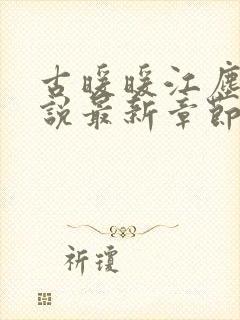 古暖暖江塵
說最新章節
祈瓊